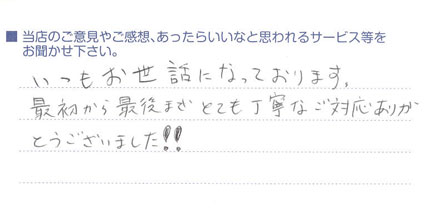 ■ 当店のご意見やご感想、あったらいいなと思われるサービス等を
お聞かせ下さい。
いつもお世話になっております。
最初から最後まで とても丁寧なご対応ありが
とうございました!!